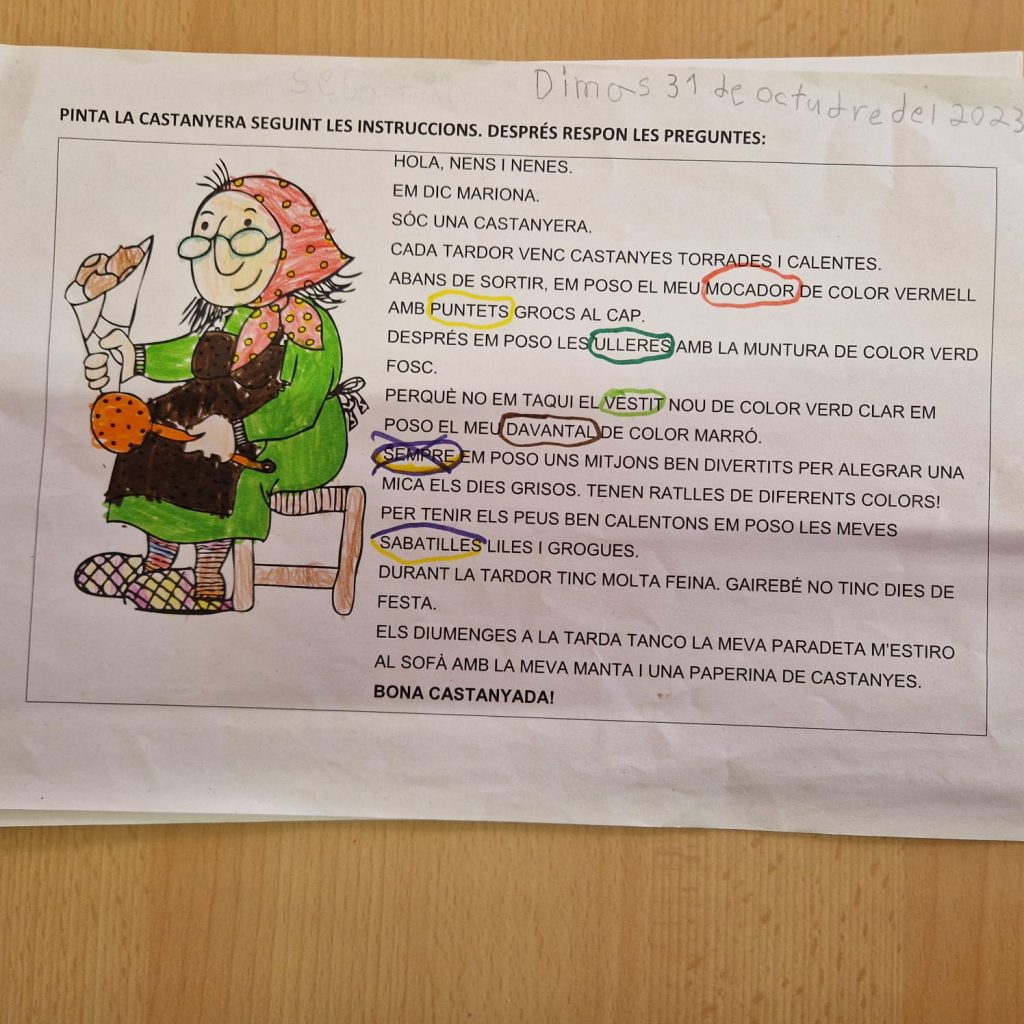 Dimos 31 de octudre del 2023
PINTA LA CASTANYERA SEGUINT LES INSTRUCCIONS. DESPRÉS RESPON LES PREGUNTES:
HOLA, NENS I NENES.
EM DIC MARIONA.
SÓC UNA CASTANYERA.
CADA TARDOR VENC CASTANYES TORRADES I CALENTES.
ABANS DE SORTIR, EM POSO EL MEU MOCADOR DE COLOR VERMELL
AMB PUNTETS GROCS AL CAP.
DESPRÉS EM POSO LES ULLERES AMB LA MUNTURA DE COLOR VERD
FOSC.
PERQUÈ NO EM TAQUI EL VESTIT NOU DE COLOR VERD CLAR EM
POSO EL MEU DAVANTAL DE COLOR MARRÓ.
SEMPRE EM POSO UNS MITJONS BEN DIVERTITS PER ALEGRAR UNA
MICA ELS DIES GRISOS. TENEN RATLLES DE DIFERENTS COLORS!
PER TENIR ELS PEUS BEN CALENTONS EM POSO LES MEVES
SABATILLES LILES I GROGUES.
DURANT LA TARDOR TINC MOLTA FEINA. GAIREBÉ NO TINC DIES DE
FESTA.
ELS DIUMENGES A LA TARDA TANCO LA MEVA PARADETA M'ESTIRO
AL SOFÀ AMB LA MEVA MANTA I UNA PAPERINA DE CASTANYES.
BONA CASTANYADA!